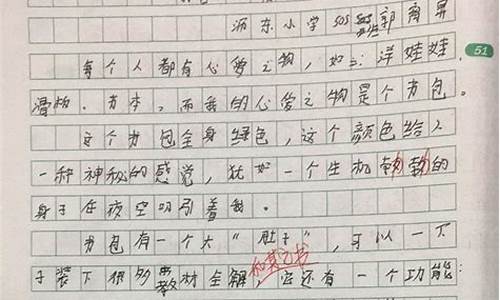 沥东小学505班郭育昇
每个人都有心爱之物,如:洋娃娃,
51
滑板、书本,而我的心爱之物是个书包。
这个书包全身绿色,这个颜色给人
一种神秘的感觉,犹如一个生机勃勃的
身子在夜空吸引着我。
书包有一个大“肚子”,可以一下
子装下很多教材全解和其它书它还有一个功能